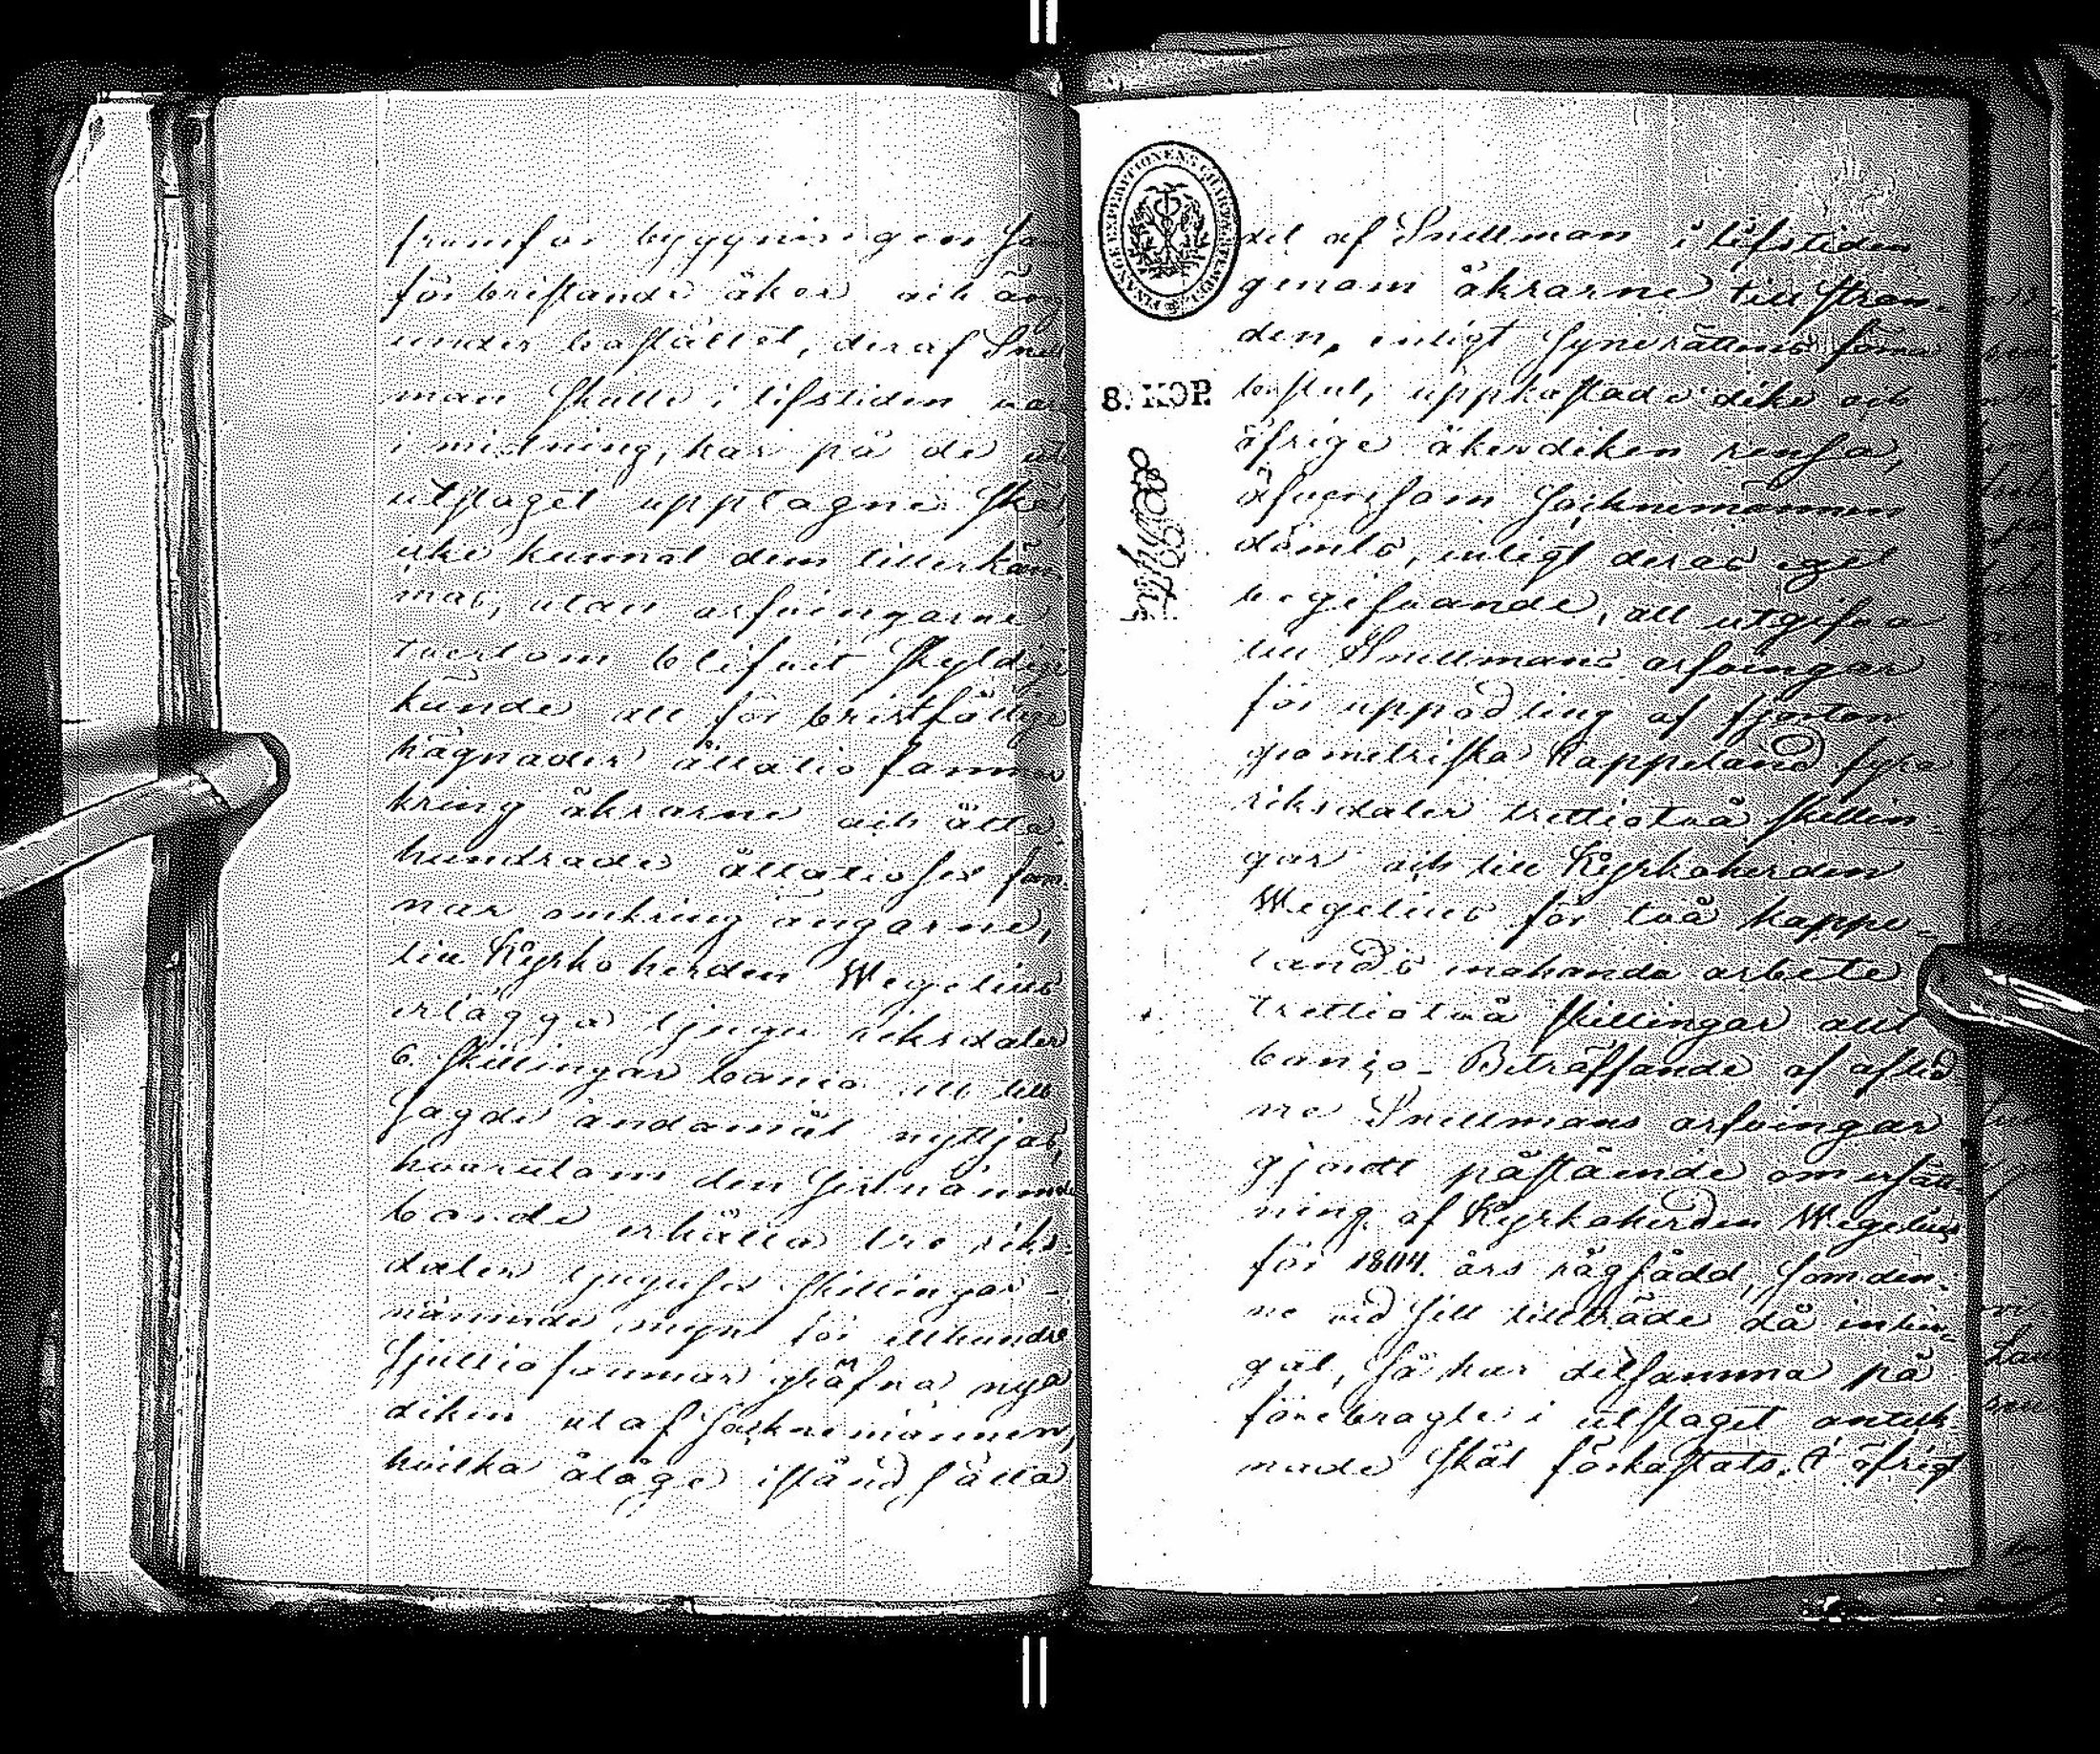 framför byggningen sam
för bristande åker och äng
under bostället, deraf Snell
man skulle i lifstiden var
i mistning, har på de ut
utslaget upptagne skäl,
icke kunnat dem tillerkän
nas, utan arfvingarne
tvertom blifvit skyldig
kände att för bristfällige
hägnader åttatio famnar
kring åkrarne och åtta
hundrade åttatiosex fam¬
nar omkring ängarne,
till Kyrkoherden Wegelius
erlägga tjugu riksdaler
6. skillingar banco att till
sagde ändamål nyttjas,
hvarutom den sistnämnde
borde erhålla tre riks-
daler tjugusex skillingar
nämnde mynt för etthundra
sjuttio famnar gräfna nya
diken utaf Socknemännen,
hvilka ålåge istånd sätta
det af Snellman i lifstiden
genom åkrarne till stran-
den, enligt Synerättens
beslut, uppkastade dike och
öfrige åkerdiken rensa,
äfvensom Socknemännen
dömts, enligt deras eget
begifvande, att utgifva
till Snellmans arfvingar
för uppodling af fjorton
geometriska kappeland fyra
riksdaler trettiotvå skillin-
gar och till Kyrkoherden
Wegelius för två kappe-
lands enahanda arbete
trettiotvå skillingar allt
banco. Beträffande af aflid
ne Snellmans arfvingar
gjordt påstående om ersätt-
ning af Kyrkoherden Wegelius
för 1804. års rågsådd, som den-
ne vid sitt tillträde då inbär-
gat, så har detsamma på
förebragte i utslaget anteck
nade skäl förkastats. I öfrigt
FINANCE EXPEDITIONENS CHARTÆ STEMPEL
8. KOP.